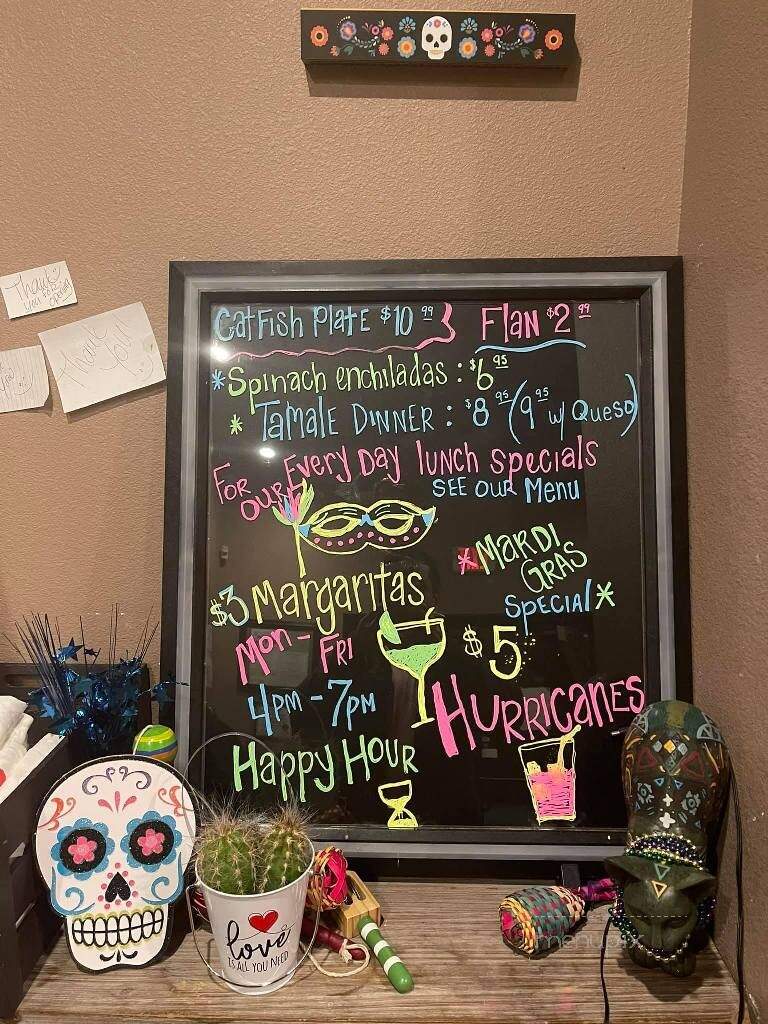 Thank you
Thank You!
Catfish Plate $10 99 Flan $2 99
*Spinach enchiladas : $6 95
* Tamale Dinner : $8 95 (9 95 w/ Queso)
For our Every Day lunch specials
SEE OUR Menu
*Mardi
Gras
Special*
$3 Margaritas
Mon - Fri
4pm - 7pm
Happy Hour
$5
Hurricanes
love
IS ALL YOU NEED
menupix